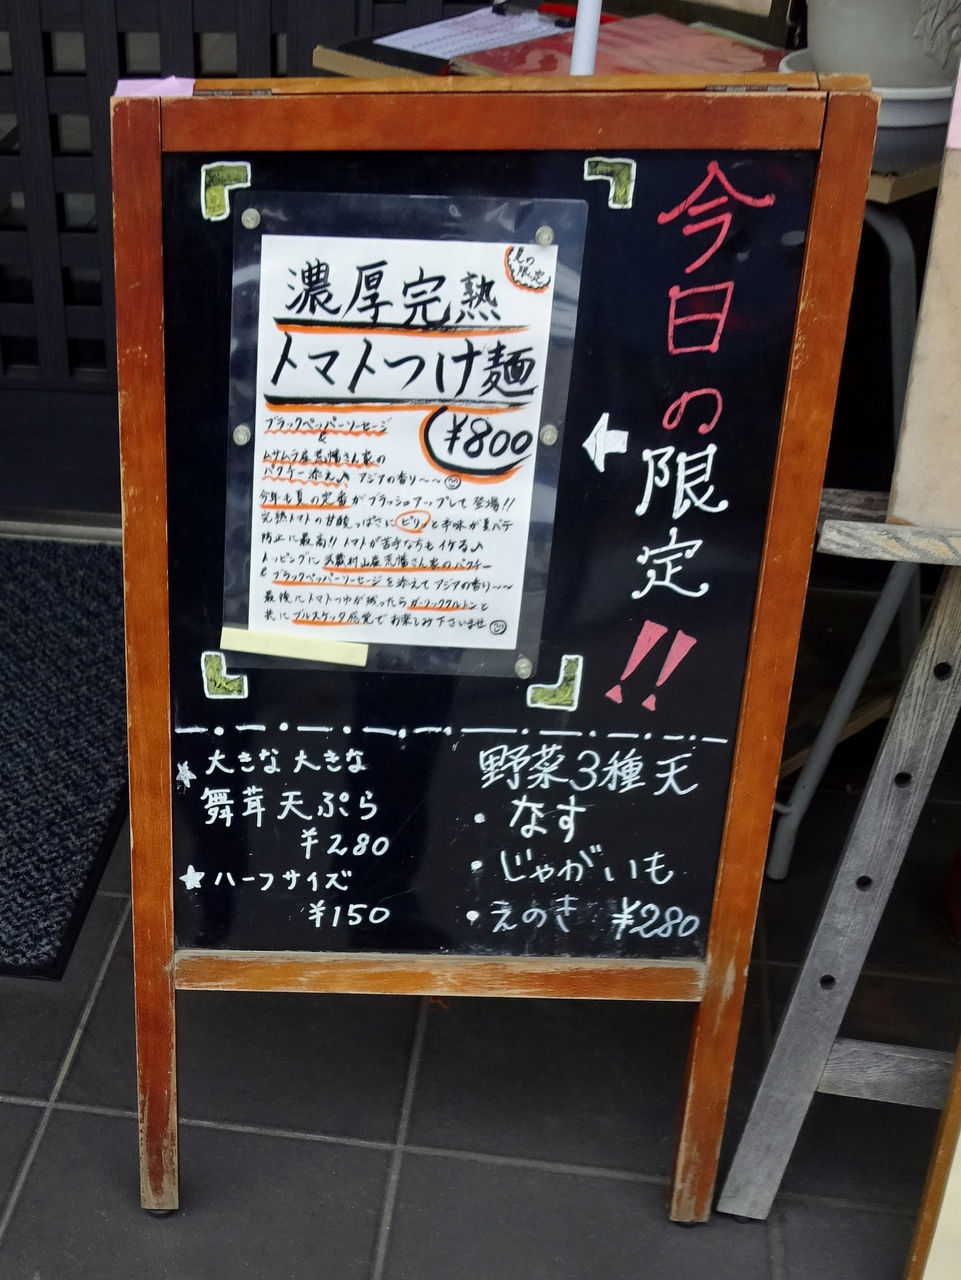 今日の限定!!
夏の
限定
濃厚完熟
トマトつけ麺
¥800
ブラックペッパーソーセージ
&
ムサムラ産荒幡さん家の
パクチー添え♪ アジアの香り〜〜
今年も夏の定番がブラッシュアップして登場!!
完熟トマトの甘酸っぱさにピリッと辛味が夏バテ
防止に最高!! トマトが苦手な方もイケる♪
トッピングに武蔵村山産荒幡さん家のパクチー
&ブラックペッパーソーセージを添えてアジアの香り〜〜
最後にトマトつゆが残ったらガーリックタルトンと
共にブルスケッタ感覚でお楽しみ下さいませ
★大きな大きな
舞茸天ぷら
¥280
★ハーフサイズ
¥150
野菜3種天
・なす
・じゃがいも
・えのき ¥280